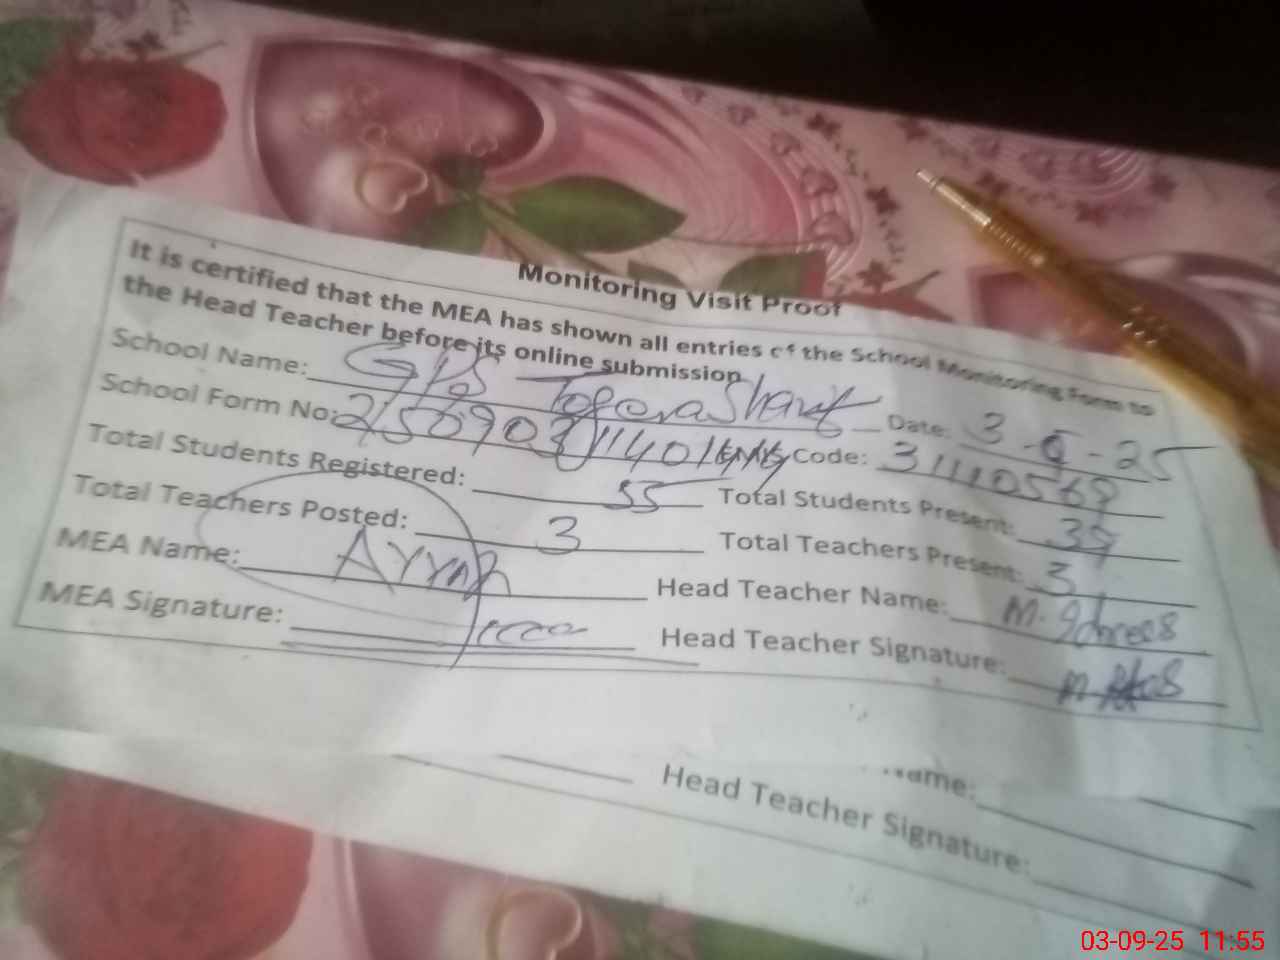 Monitoring Visit Proof
It is certified that the MEA has shown all entries of the School Monitoring Form to
the Head Teacher before its online submission
School Name: GPS Date: 3-9-25
School Form No: Code: 31110569
Total Students Registered: 55 Total Students Present: 39
Total Teachers Posted: 3 Total Teachers Present: 3
MEA Name: Head Teacher Name: M. Idrees
MEA Signature: Head Teacher Signature:
ame:
Head Teacher Signature:
03-09-25 11:55